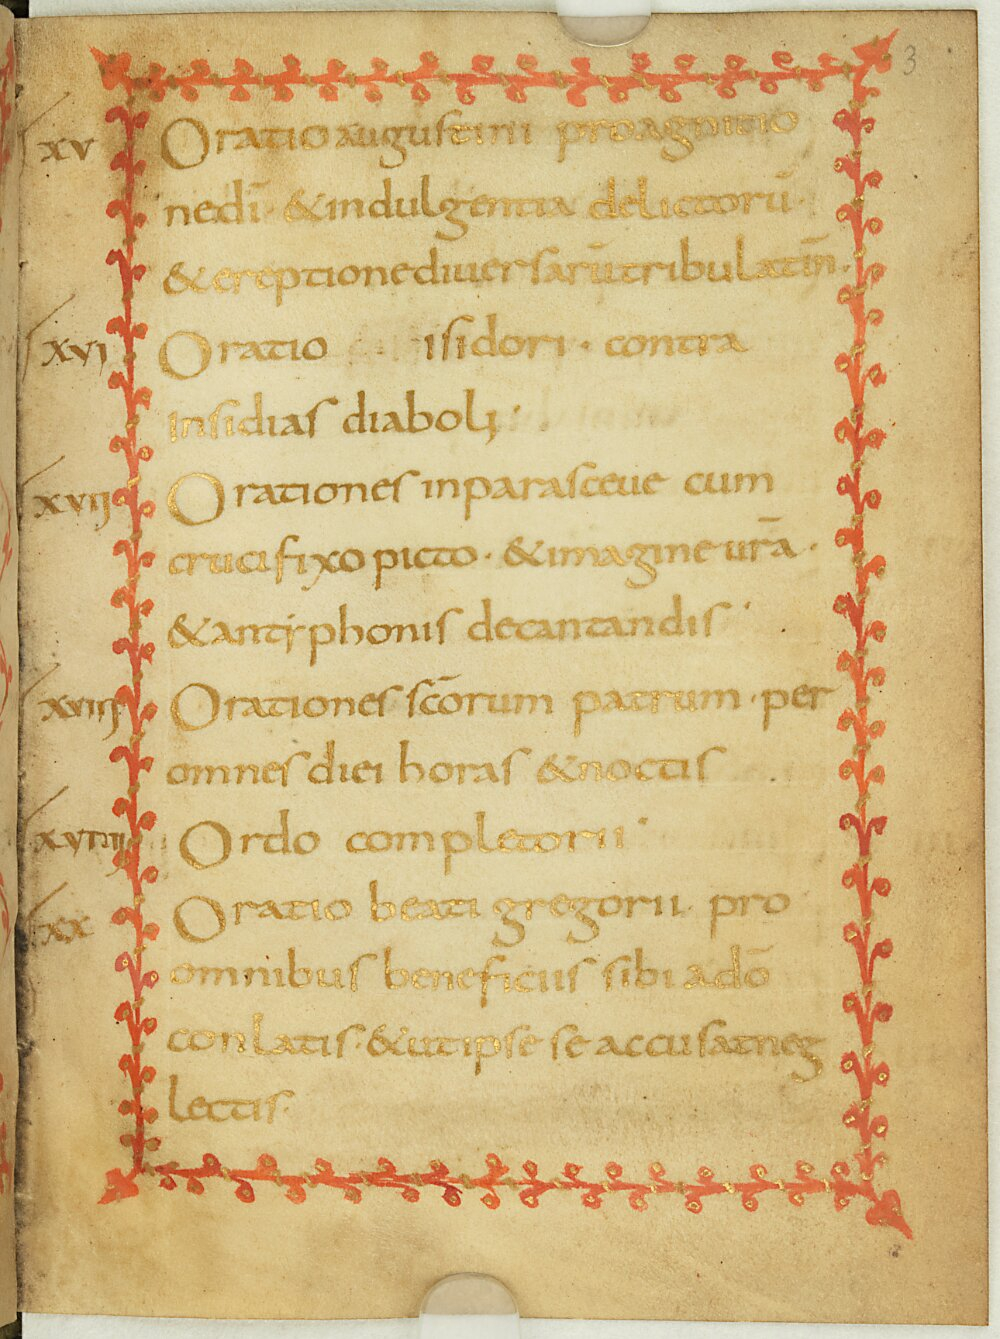 3
XV Oratio augustini pro agnitio
nedī· & indulgentia delictorū·
& ereptione diuersarū tribulatiñ·
XVI Oratio isidori· contra
insidias diaboli;
XVII Orationes in parasceue cum
crucifixo picto· & imagine ur̄a·
& antyphonis decantandis·
XVIII Orationes sc̄orum patrum· per
omnes diei horas & noctis
XVIIII Ordo completorii·
XX Oratio beati gregorii pro
omnibus beneficiis sibi adō
conlatis· & ut ipse se accusat neg
lectis·